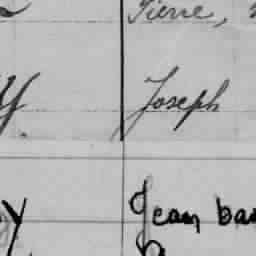 Pierre,
y Joseph
y Jean bas